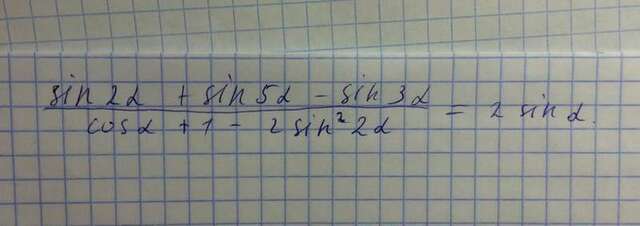 sin 2α + sin 5α - sin 3α
cos α + 1 - 2 sin² 2α = 2 sin α.